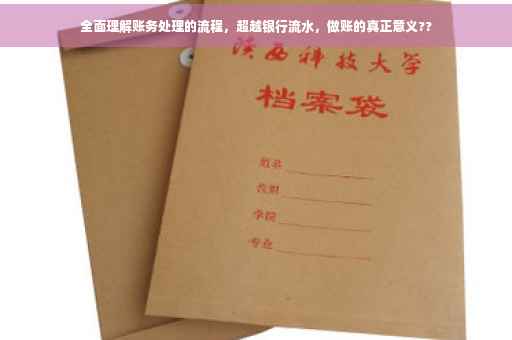 全面理解账务处理的流程，超越银行流水，做账的真正意义??
陕西科技大学
档案袋
学院
专业